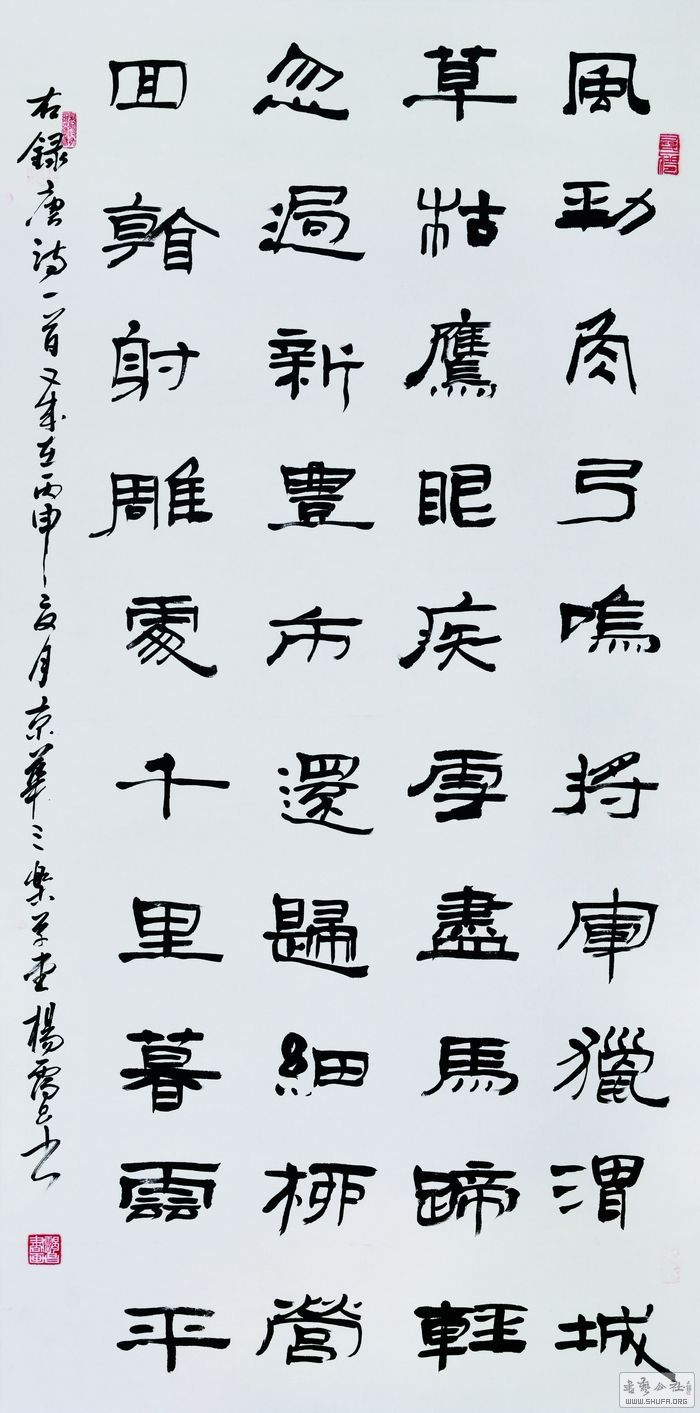 風勁角弓鳴將軍獵渭城
草枯鷹眼疾雪盡馬蹄輕
忽過新豐市還歸細柳營
回看射雕處千里暮雲平
右録唐詩一首歲在丙申夏月京華三樂草堂楊書
書藝公社
WWW.SHUFA.ORG